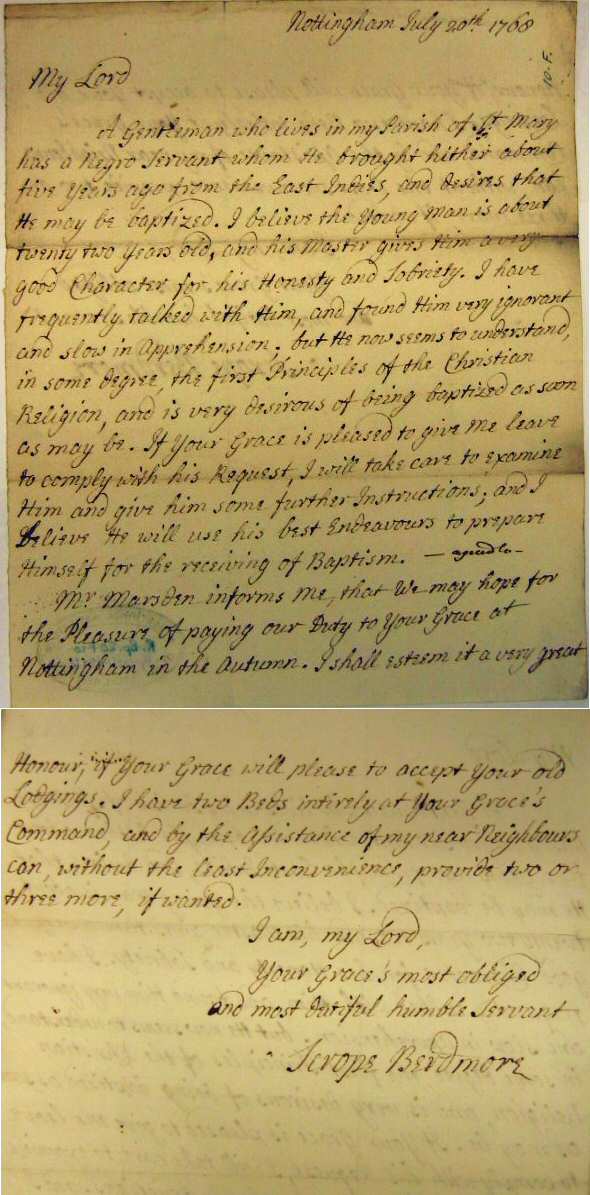 Nottingham July 20th. 1768
10. F.
My Lord
A Gentleman who lives in my Parish of St. Mary
has a Negro Servant whom He brought hither about
five Years ago from the East Indies, and desires that
He may be baptized. I believe the Young Man is about
twenty two Years old, and his Master gives Him a very
good Character for his Honesty and Sobriety. I have
frequently talked with Him, and found Him very ignorant
and slow in Apprehension; but He now seems to understand,
in some degree, the first Principles of the Christian
Religion, and is very desirous of being baptized as soon
as may be. If Your Grace is pleased to give me leave
to comply with his Request, I will take care to examine
Him and give him some further Instructions; and I
believe He will use his best Endeavours to prepare
Himself for the receiving of Baptism. —
Mr. Marsden informs me, that We may hope for
the Pleasure of paying our Duty to Your Grace at
Nottingham in the Autumn. I shall esteem it a very great
Honour, if Your Grace will please to accept Your old
Lodgings. I have two Beds intirely at Your Grace's
Command, and by the Assistance of my near Neighbours
can, without the least Inconvenience, provide two or
three more, if wanted.
I am, my Lord,
Your Grace's most obliged
and most dutiful humble Servant
Scrope Berdmore